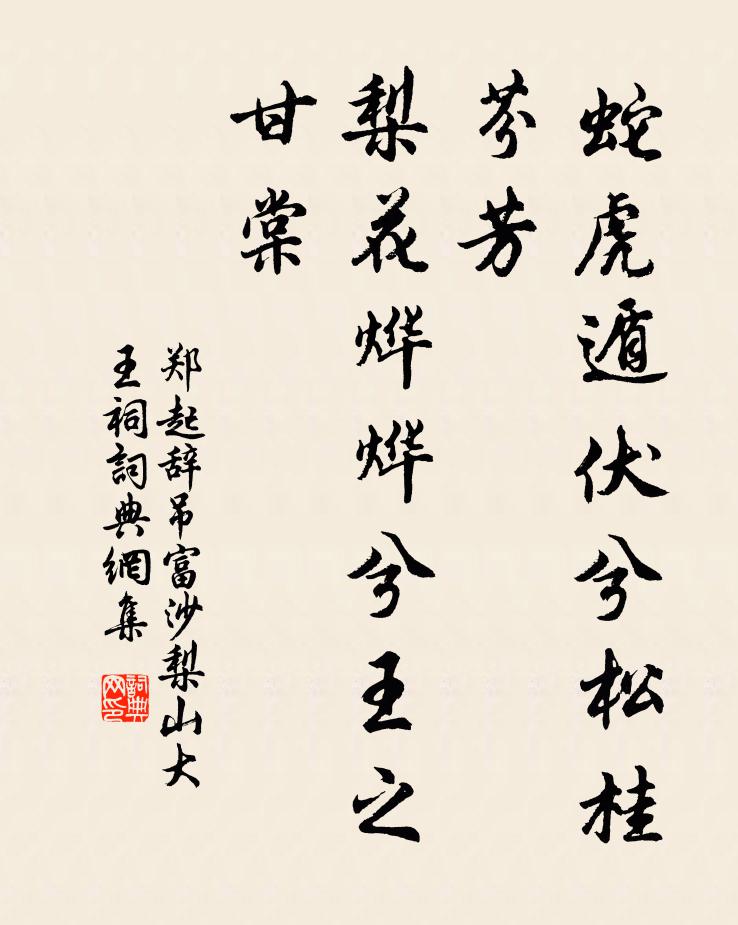 蛇虎遁伏兮松桂
芬芳
梨花烨烨兮王之
甘棠
郑起辞吊富沙梨山大
王祠詞典網集
詞典网印